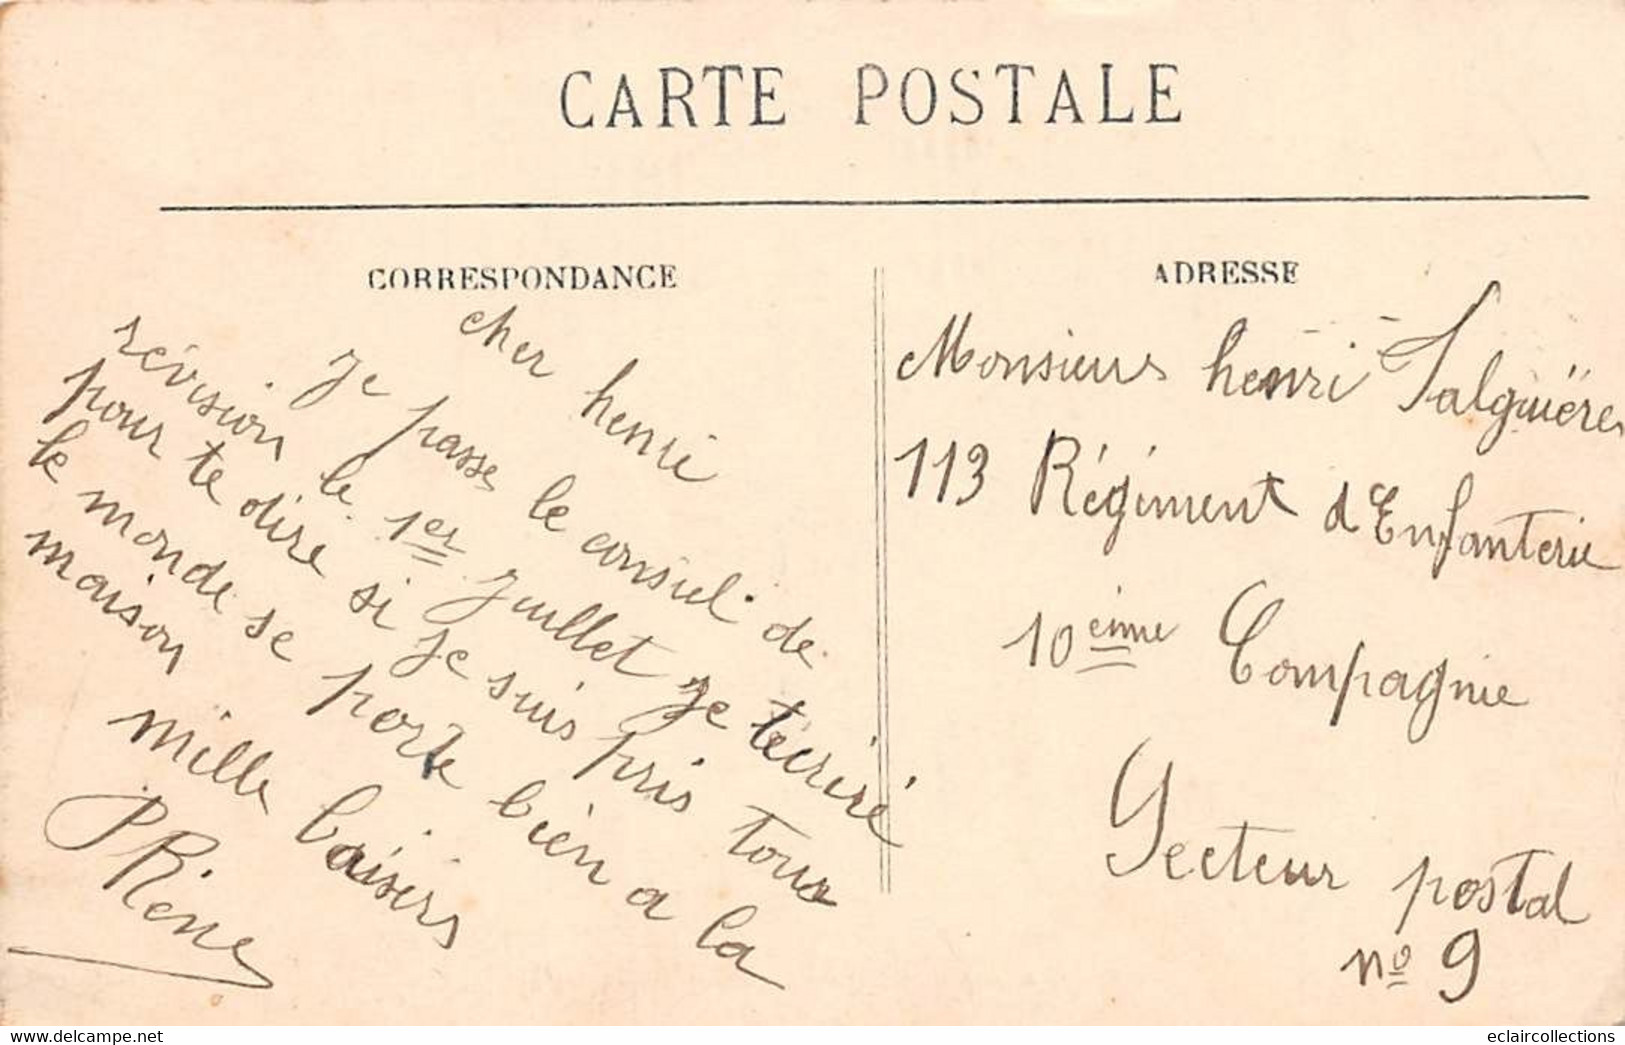 CARTE POSTALE
CORRESPONDANCE
cher henri
je passe le consiel de
révision le 1er Juillet je técriré
pour te dire si je suis pris tous
le monde se porte bien a la
maison
mille baisers
Réne
ADRESSE
Monsieur henri Salguières
113 Régiment d'Enfanterie
10ème Compagnie
Secteur postal
no 9
www.delcampe.net
eclaircollections